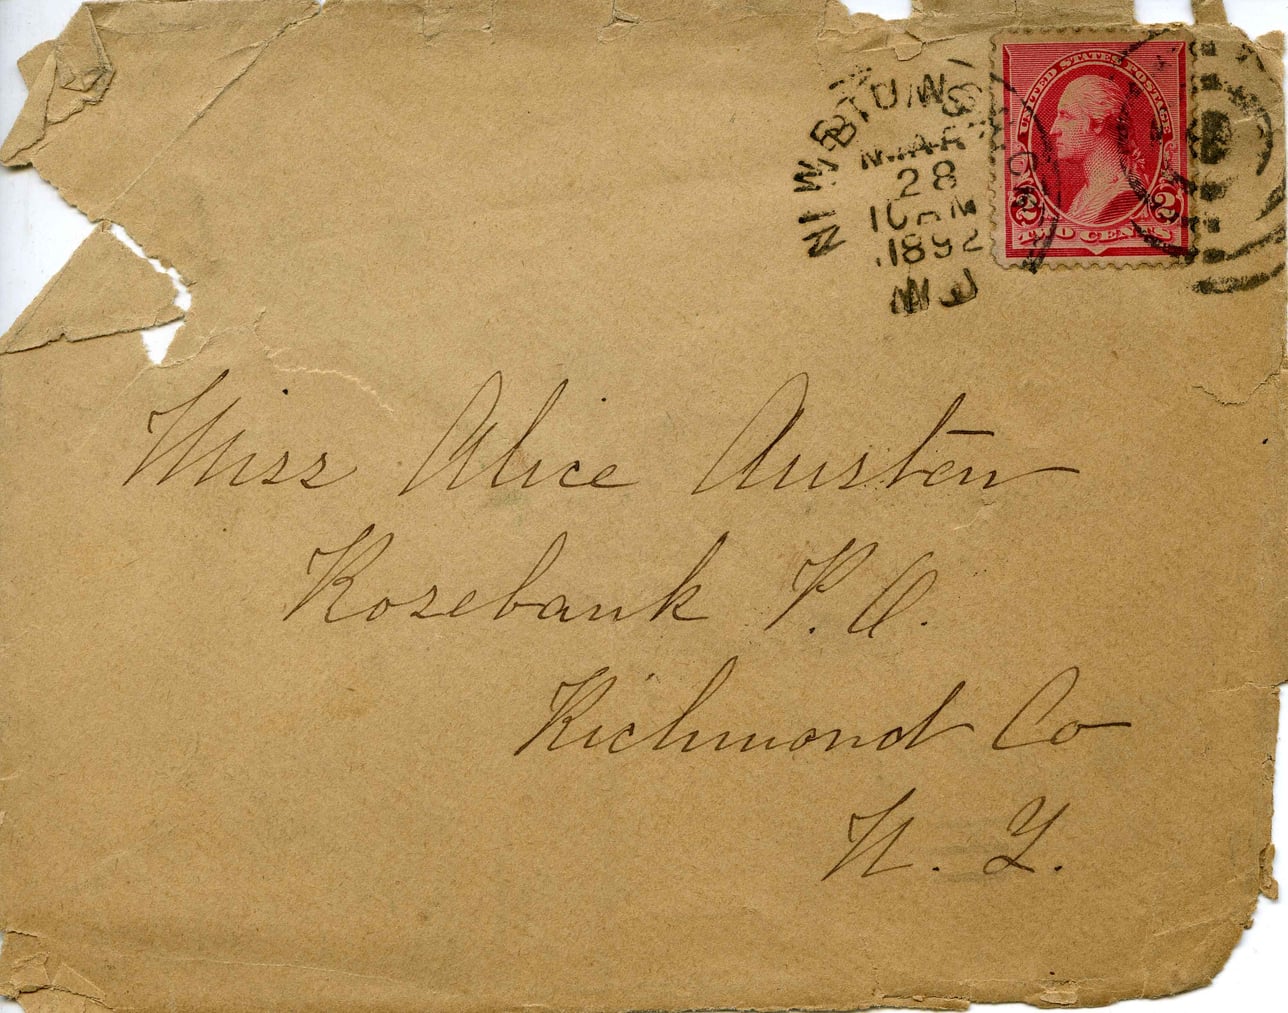 UNITED STATES POSTAGE
2 2
TWO CENTS
MAR
28
10 AM
1892
N J
Miss Alice Austen
Rosebank P. O.
Richmond Co
N. Y.